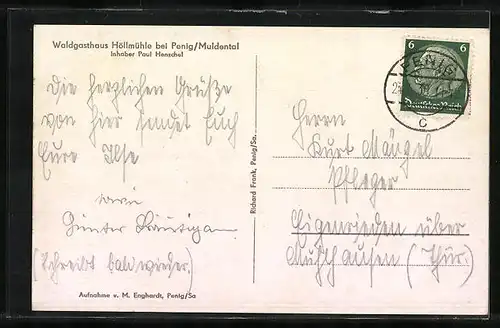 Waldgasthaus Höllmühle bei Penig/Muldental
Inhaber Paul Henschel
Die herzlichen Grüße
von hier sendet Euch
Eure Ilse
sowie
Günter
(Schreibt bald wieder.)
Aufnahme v. M. Enghardt, Penig/Sa
Richard Frank, Penig/Sa.
6 6
Deutsches Reich
PENIG
c
Herrn
Kurt Mängel
Pfleger
Eigenrieden über
Mühlhausen (Thür.)